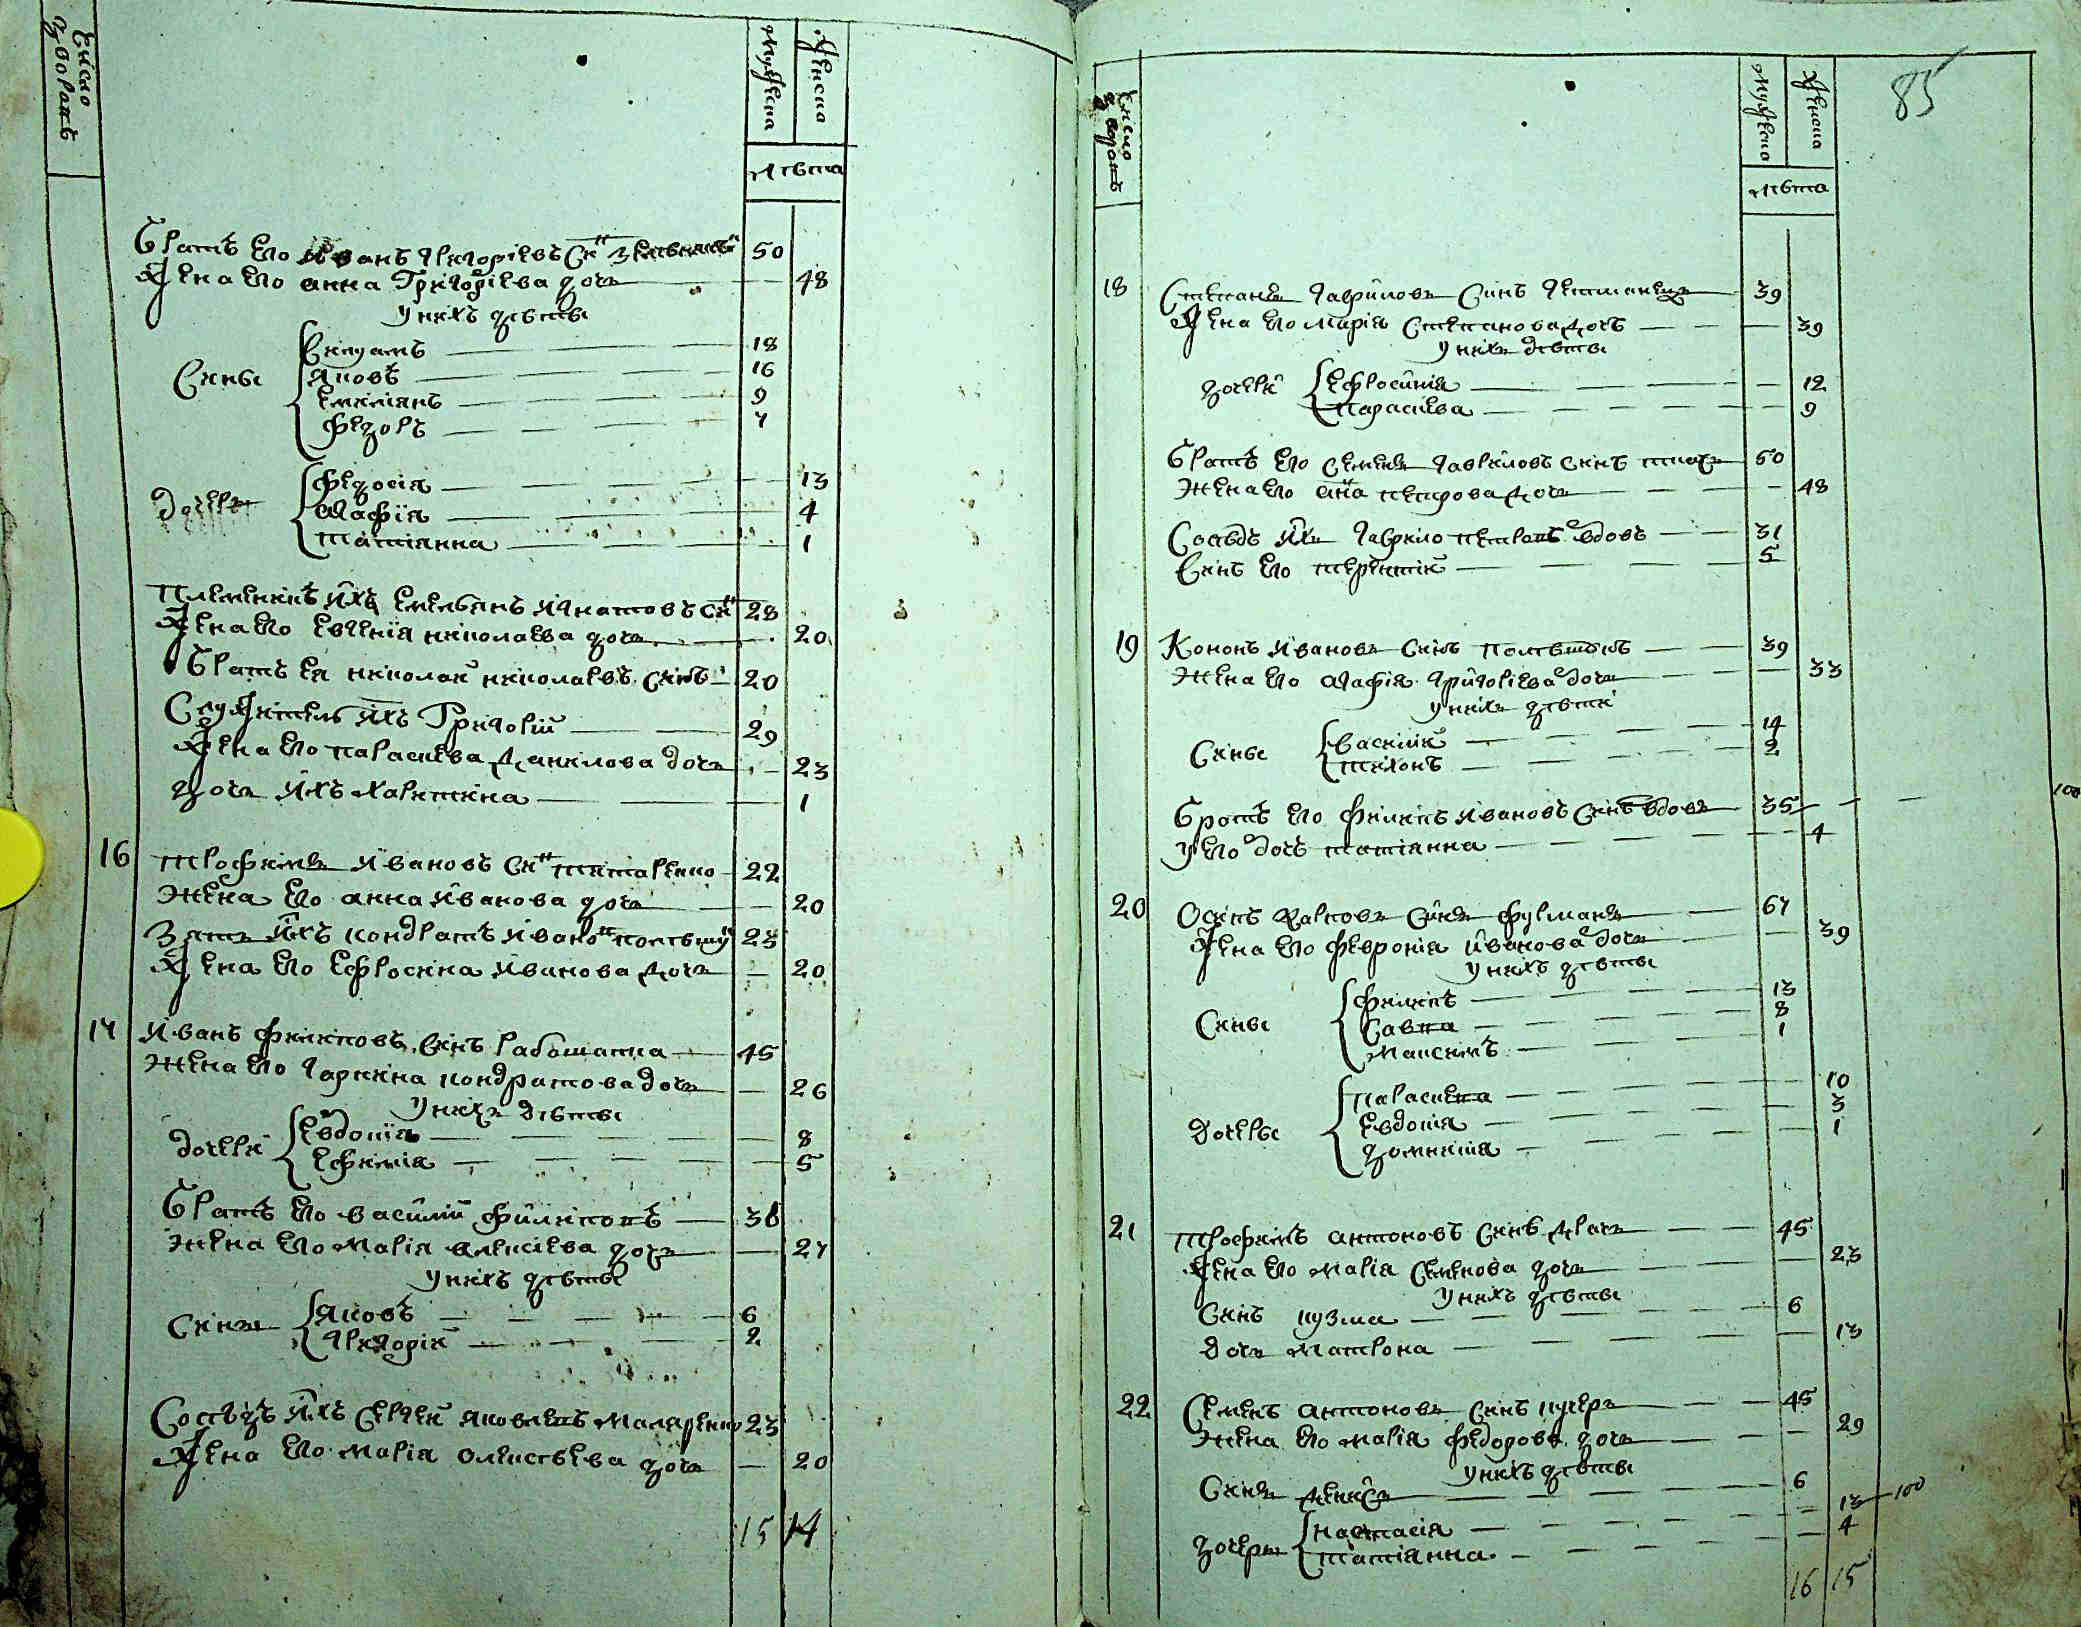 Число дворовъ
Мужеска
Женска
Лѣта
Братъ его Иванъ Григориевъ Сн҃ъ 50
Жена его анна Григориева дочь 48
У нихъ дѣти
Сины
Яковъ 16
Емилианъ 9
Федоръ 7
дочери
Федосія 13
Агафія 4
Татіянна 1
Племеникъ ихъ Емельянъ Игнатовъ Сн҃ъ 28
Жена его Евгенія николаева дочь 20
Братъ ея николай николаевъ синъ 20
Служитель ихъ Григорій 29
Жена его параскева данилова дочь 23
дочь ихъ Харитина 1
16 Трофимъ Ивановъ Сн҃ъ Титаренко 22
Жена его анна Иванова дочь 20
Зять ихъ кондратъ Ивановъ 23
Жена его Ефросина Иванова дочь 20
17 Иванъ Филиповъ Синъ Работяга 45
Жена его кондратова дочь 26
У нихъ дѣти
дочери
Евдокія 8
Ефимія 5
Братъ его василий Филиповъ 36
Жена его Марія алексіева дочь 27
У нихъ дѣти
Сини
Яковъ 6
Григорій 2
Сосѣдъ ихъ Сергей Яковлевъ Маляренко 23
Жена его Марія олексѣева дочь 20
15 14
85
Число дворовъ
Мужеска
Женска
Лѣта
18 Степанъ Гавриловъ Синъ 39
Жена его Марія Степанова дочь 39
У нихъ дѣти
дочери
Ефросинія 12
Параскева 9
Братъ его Семенъ Гавриловъ синъ 50
Жена его анна петрова дочь 48
Сосѣдъ ихъ Гаврило петровъ вдовъ 31
Синъ его терентій 5
19 Кононъ Ивановъ Синъ 39
Жена его агафія григориева дочь 33
У нихъ дѣти
Сины
василій 14
тихонъ 2
Братъ его Филипъ Ивановъ Синъ вдовъ 35
100
У его дочь татіянна 4
20 Осипъ Карповъ Синъ Фурманъ 67
Жена его Февронія Иванова дочь 39
У нихъ дѣти
Сины
Филипъ 13
Савка 8
Максимъ 1
дочеры
Параскева 10
Евдокія 3
домникія 1
21 Трофимъ антоновъ Синъ 45
Жена его Марія Семенова дочь 23
У нихъ дѣти
Синъ кузма 6
дочь Матрона 13
22 Семенъ антоновъ Синъ 45
Жена его Марія Федорова дочь 29
У нихъ дѣти
Синъ денисъ 6
дочеры
Настасія 13 100
Татіянна 4
16 15